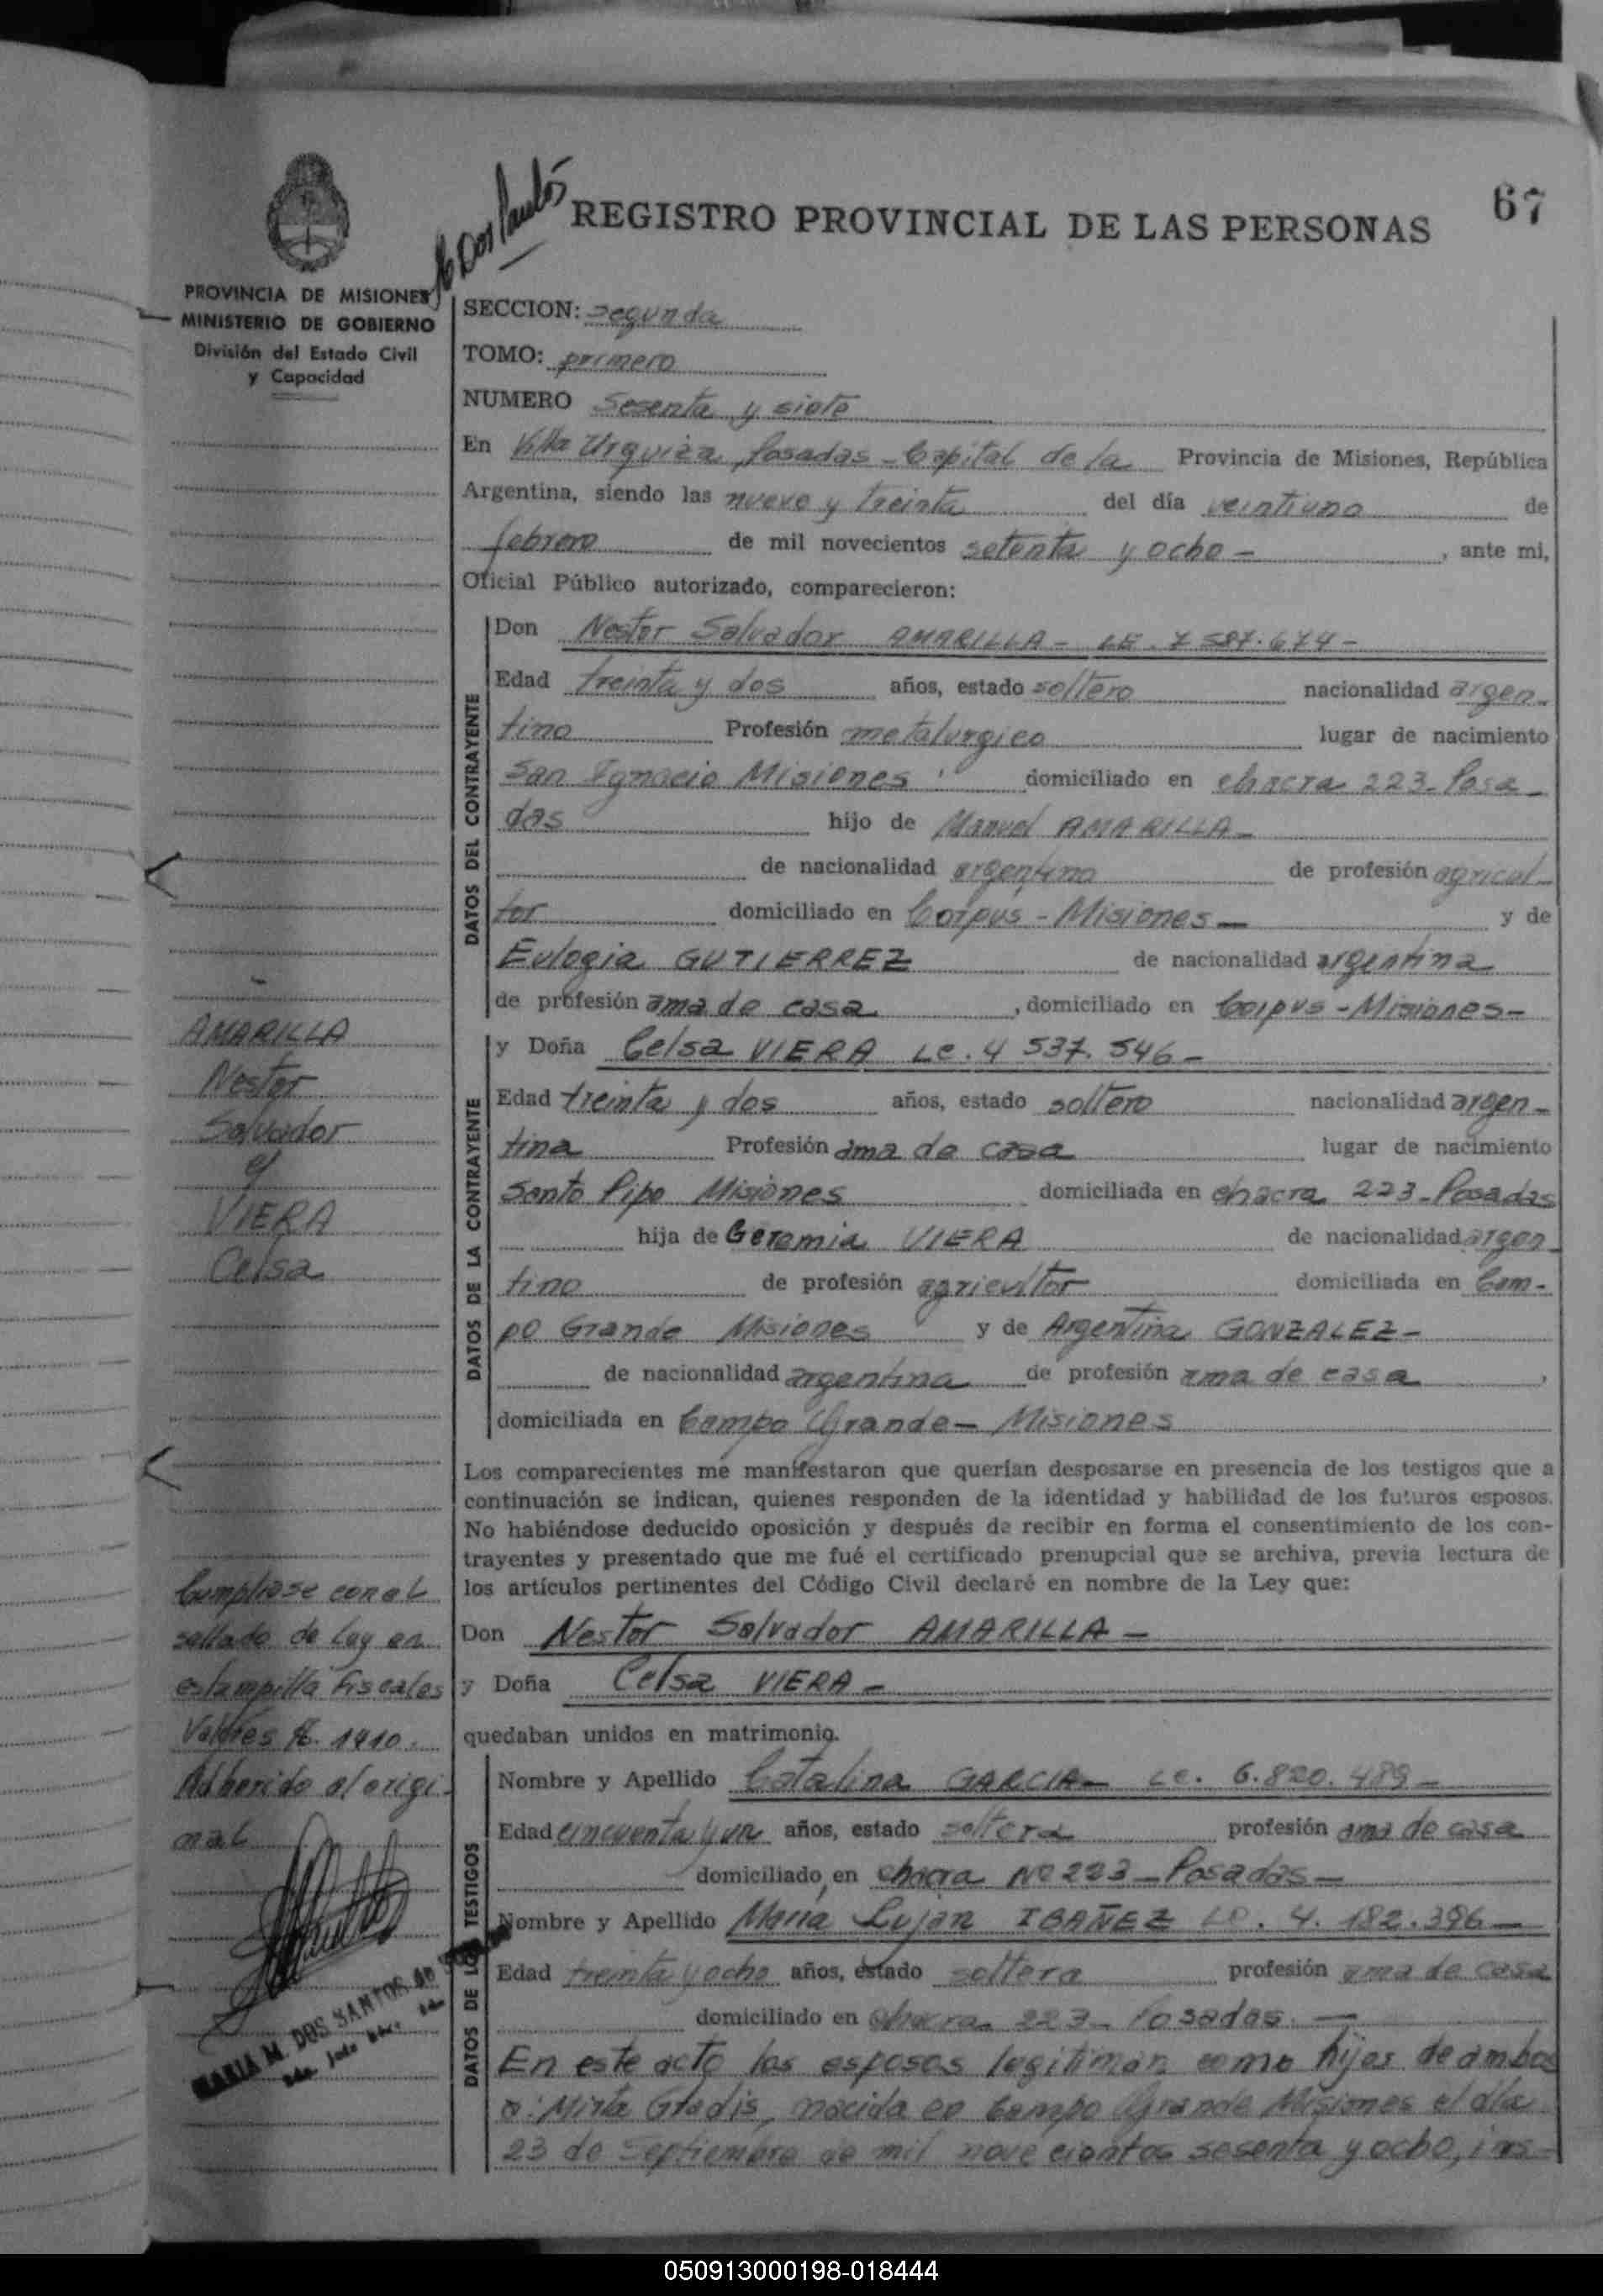 67
REGISTRO PROVINCIAL DE LAS PERSONAS
PROVINCIA DE MISIONES
MINISTERIO DE GOBIERNO
División del Estado Civil
y Capacidad
SECCION: segunda
TOMO: primero
NUMERO sesenta y siete
En Villa Urquiza, Posadas - Capital de la Provincia de Misiones, República
Argentina, siendo las nueve y treinta del día veintiuno de
febrero de mil novecientos setenta y ocho - , ante mi,
Oficial Público autorizado, comparecieron:
DATOS DEL CONTRAYENTE
Don Nestor Salvador AMARILLA - LE. 7 587.674 -
Edad treinta y dos años, estado soltero nacionalidad argen-
tino Profesión metalurgico lugar de nacimiento
San Ignacio Misiones domiciliado en chacra 223 - Posa-
das hijo de Manuel AMARILLA -
de nacionalidad argentino de profesión agricul-
tor domiciliado en Corpus - Misiones - y de
Eulogia GUTIERREZ de nacionalidad argentina
de profesión ama de casa , domiciliado en Corpus - Misiones -
DATOS DE LA CONTRAYENTE
y Doña Celsa VIERA Lc. 4 537.546 -
Edad treinta y dos años, estado soltero nacionalidad argen-
tina Profesión ama de casa lugar de nacimiento
Santo Pipo Misiones domiciliada en chacra 223 - Posadas
hija de Geremia VIERA de nacionalidad argen-
tino de profesión agricultor domiciliada en Cam-
po Grande Misiones y de Argentina GONZALEZ -
de nacionalidad argentina de profesión ama de casa ,
domiciliada en Campo Grande - Misiones
Los comparecientes me manifestaron que querían desposarse en presencia de los testigos que a
continuación se indican, quienes responden de la identidad y habilidad de los futuros esposos.
No habiéndose deducido oposición y después de recibir en forma el consentimiento de los con-
trayentes y presentado que me fué el certificado prenupcial que se archiva, previa lectura de
los artículos pertinentes del Código Civil declaré en nombre de la Ley que:
Don Nestor Salvador AMARILLA -
y Doña Celsa VIERA -
quedaban unidos en matrimonio.
DATOS DE LOS TESTIGOS
Nombre y Apellido Catalina GARCIA - Lc. 6.820.489 -
Edad cincuenta y un años, estado soltera profesión ama de casa
domiciliado en chacra No 223 - Posadas -
Nombre y Apellido Maria Lujan IBAÑEZ Lc. 4.182.396 -
Edad treinta y ocho años, estado soltera profesión ama de casa
domiciliado en chacra 223 - Posadas. -
En este acto los esposos legitiman como hijos de ambos
a: Mirta Gladis, nacida en Campo Grande Misiones el día
23 de septiembre de mil novecientos sesenta y ocho, ins-
AMARILLA
Nestor
Salvador
y
VIERA
Celsa
Cumpliose con el
sellado de Ley en
estampilla fiscales
Valores $. 1410.
Adherido al origi-
nal
MARIA M. DOS SANTOS de
050913000198-018444